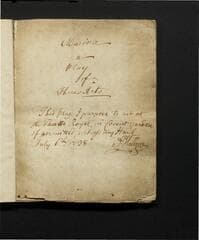 Marina
a
Play
of
Three Acts
This Play I propose to act at
the Theatre Royal, in Covent garden
if permitted
July 1738